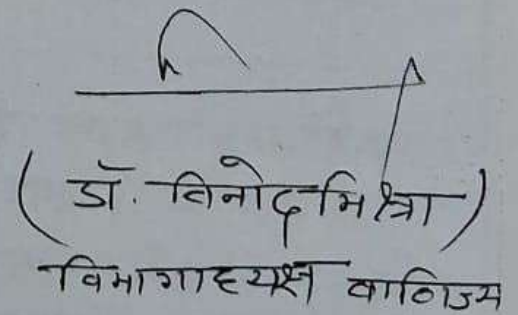 (डॉ. विनोद मिश्रा)
विभागाध्यक्ष वाणिज्य